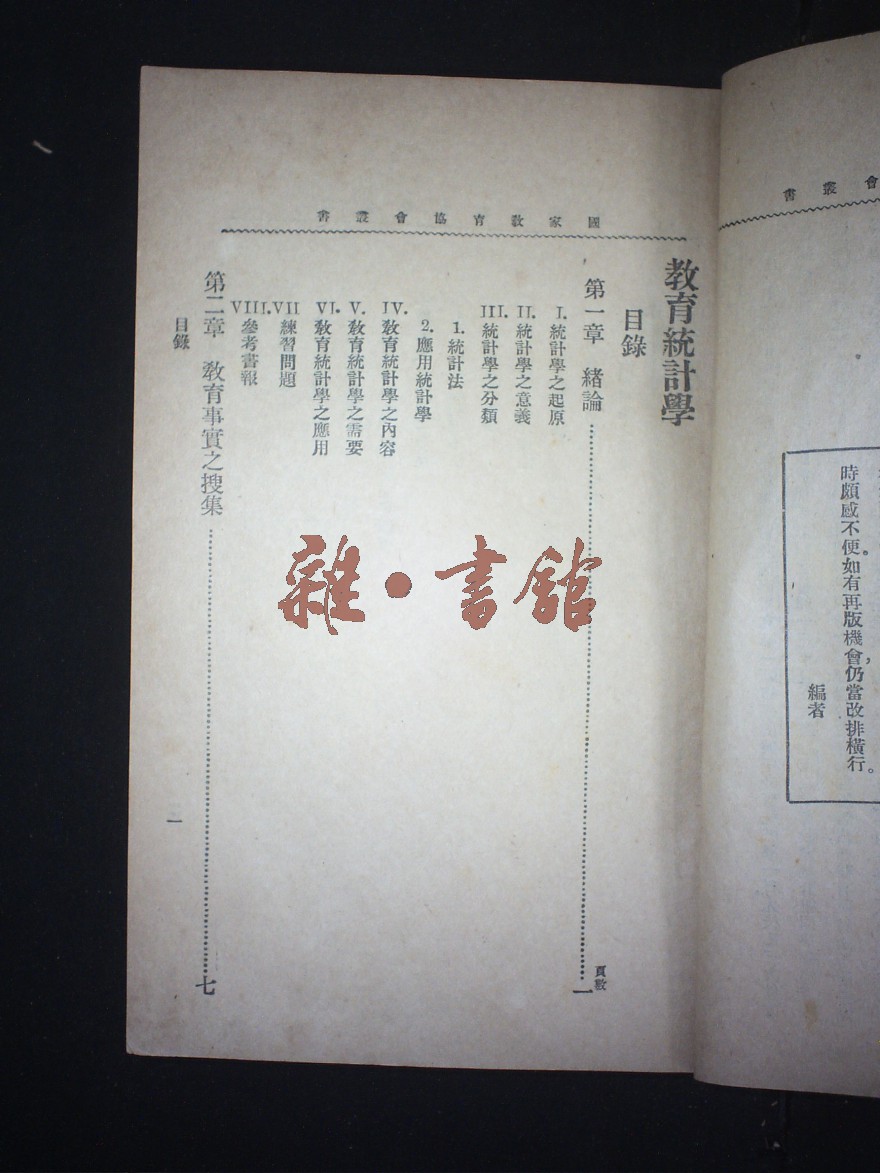 會叢書
時頗感不便。如有再版機會，仍當改排橫行。
編者
國家教育協會叢書
教育統計學
目錄
頁數
第一章　緒論……一
I. 統計學之起原
II. 統計學之意義
III. 統計學之分類
1. 統計法
2. 應用統計學
IV. 教育統計學之內容
V. 教育統計學之需要
VI. 教育統計學之應用
VII 練習問題
VIII. 參考書報
第二章　教育事實之搜集……七
目錄
一
雜·書館